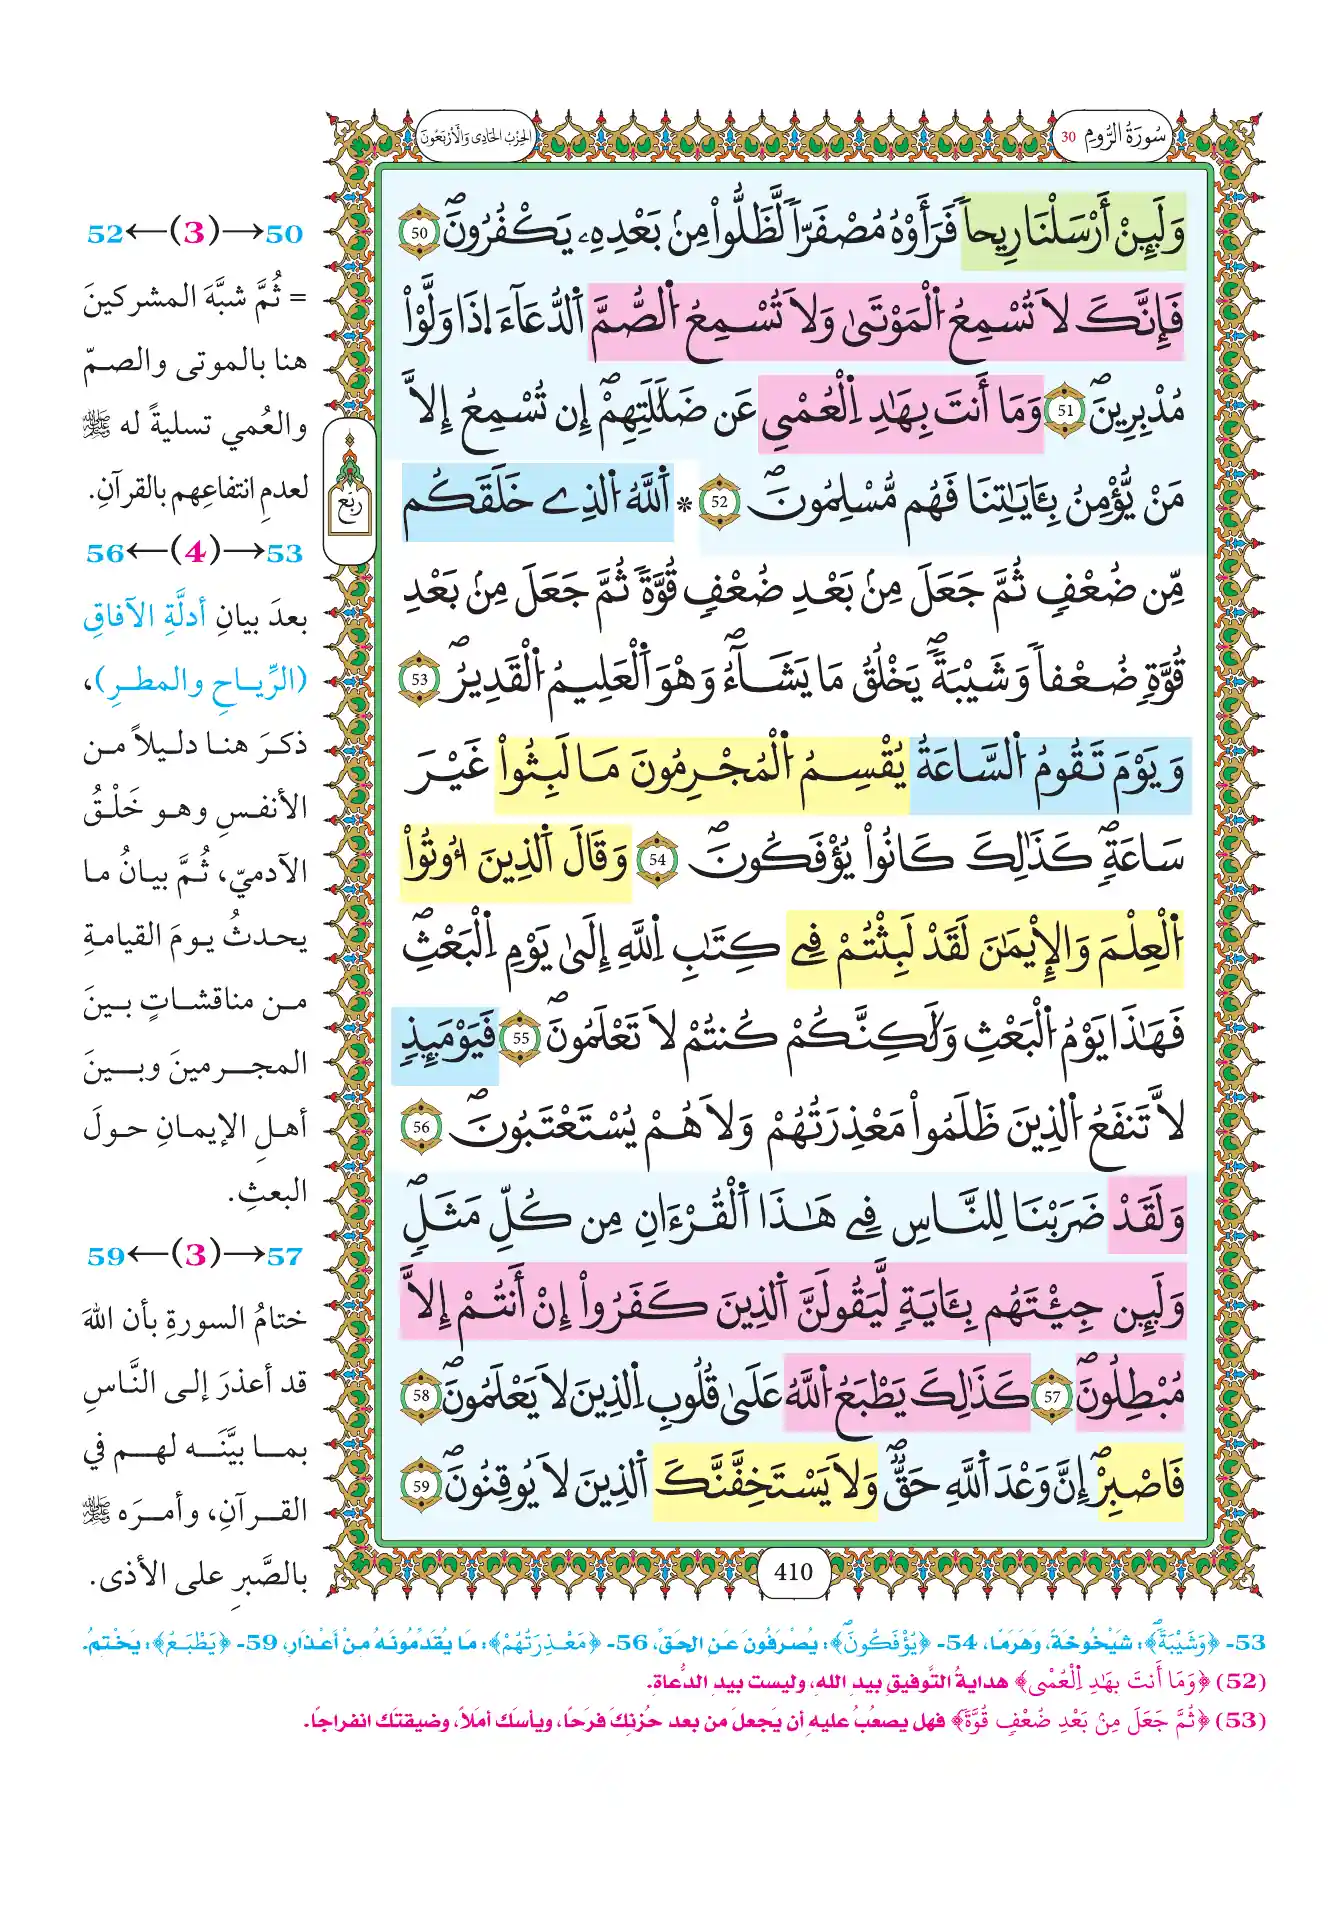 سُورَةُ الرُّومِ 30
الحِزْبُ الحَادِي وَالْأَرْبَعُونَ
وَلَئِنْ أَرْسَلْنَا رِيحاً فَرَأَوْهُ مُصْفَرّاً لَّظَلُّواْ مِنۢ بَعْدِهِۦ يَكْفُرُونَۖ 50
فَإِنَّكَ لَا تُسْمِعُ اُ۬لْمَوْتَىٰ وَلَا تُسْمِعُ اُ۬لصُّمَّ اَ۬لدُّعَآءَ اِذَا وَلَّوْاْ
مُدْبِرِينَۖ 51 وَمَا أَنتَ بِهَٰدِ اِ۬لْعُمْيِ عَن ضَلَٰلَتِهِمْۖ إِن تُسْمِعُ إِلَّا
مَنْ يُّؤْمِنُ بِـَٔايَٰتِنَا فَهُم مُّسْلِمُونَۖ 52 * اَ۬للَّهُ اُ۬لذِے خَلَقَكُم
مِّن ضُعْفٖ ثُمَّ جَعَلَ مِنۢ بَعْدِ ضُعْفٖ قُوَّةٗ ثُمَّ جَعَلَ مِنۢ بَعْدِ
قُوَّةٖ ضُعْفاً وَشَيْبَةٗۖ يَخْلُقُ مَا يَشَآءُۖ وَهْوَ اَ۬لْعَلِيمُ اُ۬لْقَدِيرُۖ 53
وَيَوْمَ تَقُومُ اُ۬لسَّاعَةُ يُقْسِمُ اُ۬لْمُجْرِمُونَ مَا لَبِثُواْ غَيْرَ
سَاعَةٖۖ كَذَٰلِكَ كَانُواْ يُؤْفَكُونَۖ 54 وَقَالَ اَ۬لذِينَ أُوتُواْ
اُ۬لْعِلْمَ وَالْإِيمَٰنَ لَقَدْ لَبِثْتُمْ فِے كِتَٰبِ اِ۬للَّهِ إِلَىٰ يَوْمِ اِ۬لْبَعْثِۖ
فَهَٰذَا يَوْمُ اُ۬لْبَعْثِ وَلَٰكِنَّكُمْ كُنتُمْ لَا تَعْلَمُونَۖ 55 فَيَوْمَئِذٖ
لَّا تَنفَعُ اُ۬لذِينَ ظَلَمُواْ مَعْذِرَتُهُمْ وَلَا هُمْ يُسْتَعْتَبُونَۖ 56
وَلَقَدْ ضَرَبْنَا لِلنَّاسِ فِے هَٰذَا اَ۬لْقُرْءَانِ مِن كُلِّ مَثَلٖۖ
وَلَئِن جِئْتَهُم بِـَٔايَةٖ لَّيَقُولَنَّ اَ۬لذِينَ كَفَرُواْ إِنْ أَنتُمْ إِلَّا
مُبْطِلُونَۖ 57 كَذَٰلِكَ يَطْبَعُ اُ۬للَّهُ عَلَىٰ قُلُوبِ اِ۬لذِينَ لَا يَعْلَمُونَۖ 58
فَاصْبِرْۖ إِنَّ وَعْدَ اَ۬للَّهِ حَقّٞۖ وَلَا يَسْتَخِفَّنَّكَ اَ۬لذِينَ لَا يُوقِنُونَۖ 59
ربع
410
50→(3)←52
= ثُمَّ شبَّهَ المشركينَ
هنا بالموتى والصمّ
والعُمي تسليةً له ﷺ
لعدمِ انتفاعِهم بالقرآنِ.
53→(4)←56
بعدَ بيانِ أدلَّةِ الآفاقِ
(الرِّياحِ والمطرِ)،
ذكرَ هنا دليلاً من
الأنفسِ وهو خَلْقُ
الآدميّ، ثُمَّ بيانُ ما
يحدثُ يومَ القيامةِ
من مناقشاتٍ بينَ
المجرمينَ وبينَ
أهلِ الإيمانِ حولَ
البعثِ.
57→(3)←59
ختامُ السورةِ بأن اللهَ
قد أعذرَ إلى النَّاسِ
بما بيَّنَه لهم في
القرآنِ، وأمرَه ﷺ
بالصَّبرِ على الأذى.
53- ﴿وَشَيْبَةٗۖ﴾: شَيْخُوخَةً، وَهَرَمًا، 54- ﴿يُؤْفَكُونَۖ﴾: يُصْرَفُونَ عَنِ الحَقِّ، 56- ﴿مَعْذِرَتُهُمْ﴾: مَا يُقَدِّمُونَهُ مِنْ أَعْذَارٍ، 59- ﴿يَطْبَعُ﴾: يَخْتِمُ.
(52) ﴿وَمَا أَنتَ بِهَٰدِ اِ۬لْعُمْيِ﴾ هدايةُ التَّوفيقِ بيدِ اللهِ، وليست بيدِ الدُّعاةِ.
(53) ﴿ثُمَّ جَعَلَ مِنۢ بَعْدِ ضُعْفٖ قُوَّةٗ﴾ فهل يصعُبُ عليهِ أن يَجعلَ من بعد حُزنِكَ فرَحًا، ويأسكَ أملاً، وضيقتَك انفراجًا.